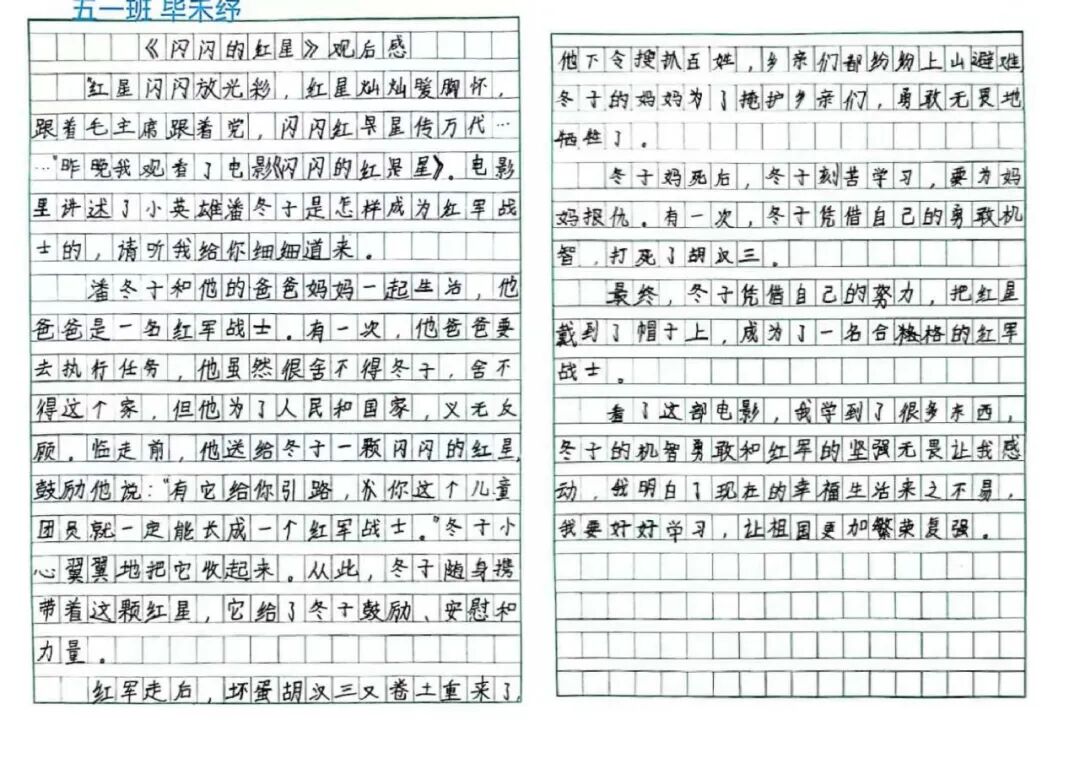 五一班 毕未纾
《闪闪的红星》观后感
“红星闪闪放光彩，红星灿灿暖胸怀，
跟着毛主席跟着党，闪闪红星传万代……
…”昨晚我观看了电影《闪闪的红星》。电影
里讲述了小英雄潘冬子是怎样成为红军战
士的，请听我给你细细道来。
潘冬子和他的爸爸妈妈一起生活，他
爸爸是一名红军战士。有一次，他爸爸要
去执行任务，他虽然很舍不得冬子，舍不
得这个家，但他为了人民和国家，义无反
顾。临走前，他送给冬子一颗闪闪的红星，
鼓励他说：“有它给你引路，你这个儿童
团员就一定能长成一个红军战士。”冬子小
心翼翼地把它收起来。从此，冬子随身携
带着这颗红星，它给了冬子鼓励、安慰和
力量。
红军走后，坏蛋胡汉三又卷土重来了，
他下令搜扒百姓，乡亲们都纷纷上山避难，
冬子的妈妈为了掩护乡亲们，勇敢无畏地
牺牲了。
冬子妈死后，冬子刻苦学习，要为妈
妈报仇。有一次，冬子凭借自己的勇敢机
智，打死了胡汉三。
最终，冬子凭借自己的努力，把红星
戴到了帽子上，成为了一名合格的红军
战士。
看了这部电影，我学到了很多东西，
冬子的机智勇敢和红军的坚强无畏让我感
动，我明白了现在的幸福生活来之不易，
我要好好学习，让祖国更加繁荣复强。